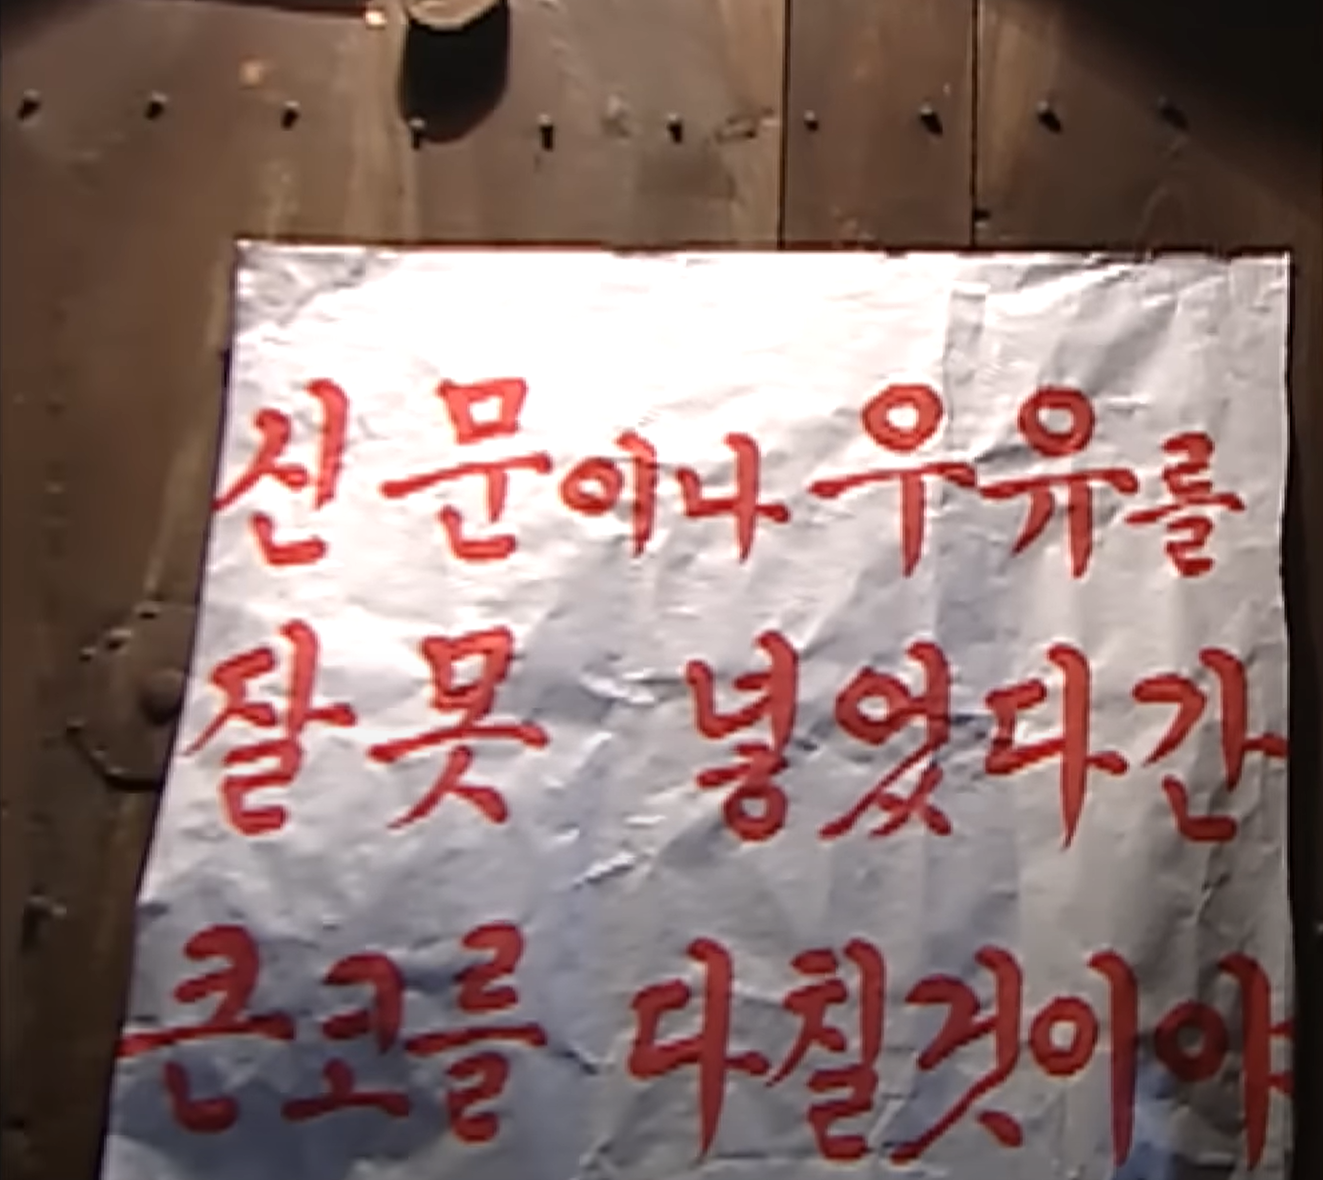 신문이나 우유를
잘못 넣었다간
큰코를 다칠것이야